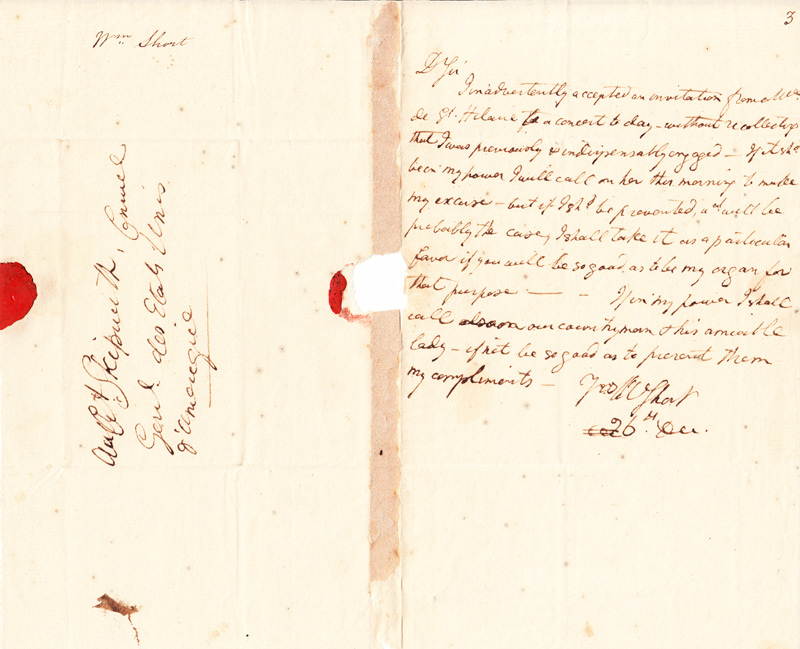 Wm Short
Conseil
Genl. des Etats Unis
d'amerique
3
D Sir
I inadvertently accepted an invitation from
de St. Hilaire to a concert to day - without recollecting
that I was previously & indispensably engaged - If it shd
be in my power I will call on her this morning to make
my excuse - but if I shd be prevented, as will be
probably the case, I shall take it as a particular
favor if you will be so good as to be my organ for
that purpose — - If in my power I shall
call on our countryman & his amiable
lady - if not be so good as to present them
my compliments - Yrs W Short
26th Dec.